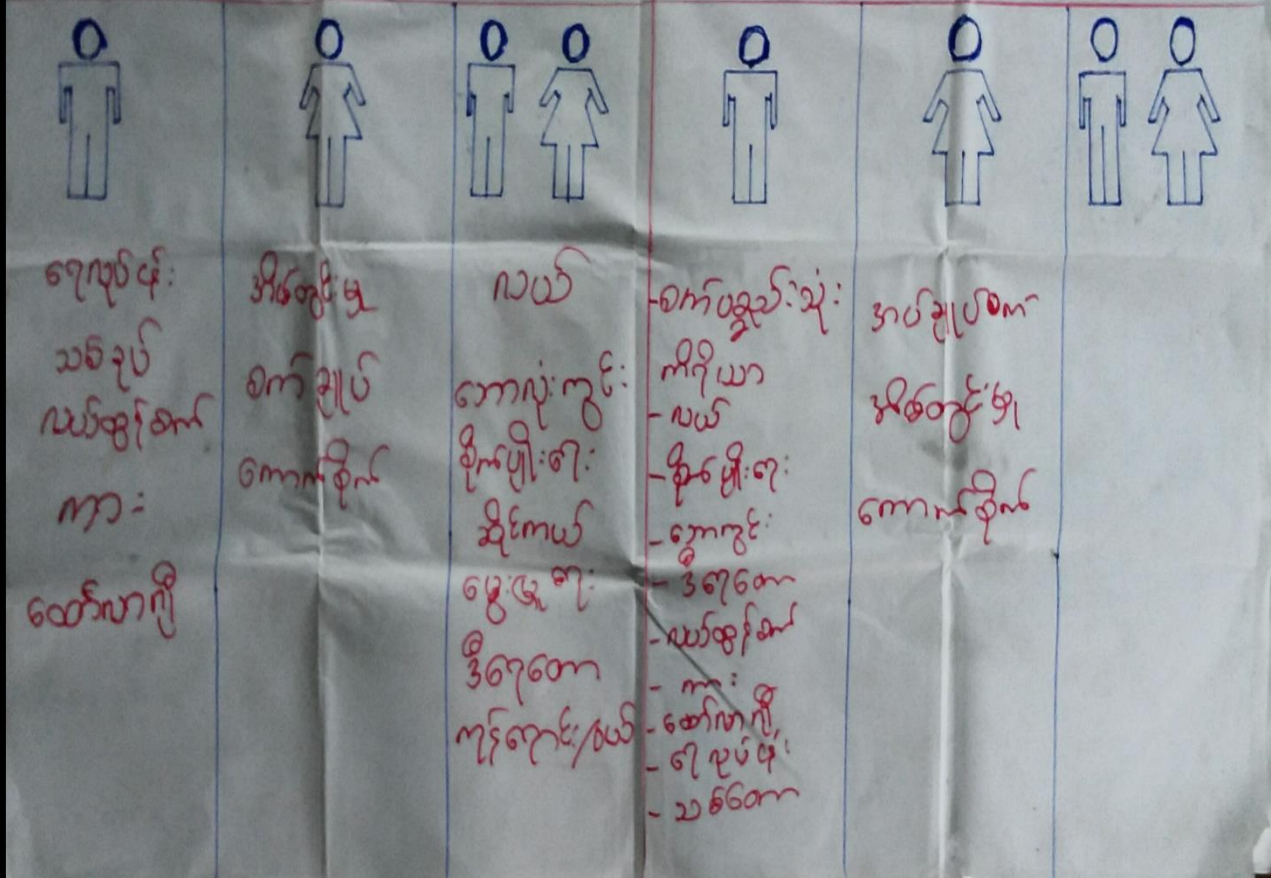 ရေလုပ်ငန်း
သစ်ခုပ်
လယ်ထွန်စက်
ကား
ထော်လာဂျီ
အိမ်တွင်းမှု
စက်ချုပ်
ကောက်စိုက်
လယ်
ဘောလုံးကွင်း
စိုက်ပျိုးရေး
ဆိုင်ကယ်
မွေးမြူရေး
ဒီရေတော
ကုန်ရောင်း/ဝယ်
-စက်ပစ္စည်းသုံး
ကိရိယာ
- လယ်
- စိုက်ပျိုးရေး
- ဘောကွင်း
- ဒီရေတော
- လယ်ထွန်စက်
- ကား
- ထော်လာဂျီ
- ရေလုပ်ငန်း
- သစ်တော
အပ်ချုပ်စက်
အိမ်တွင်းမှု
ကောက်စိုက်